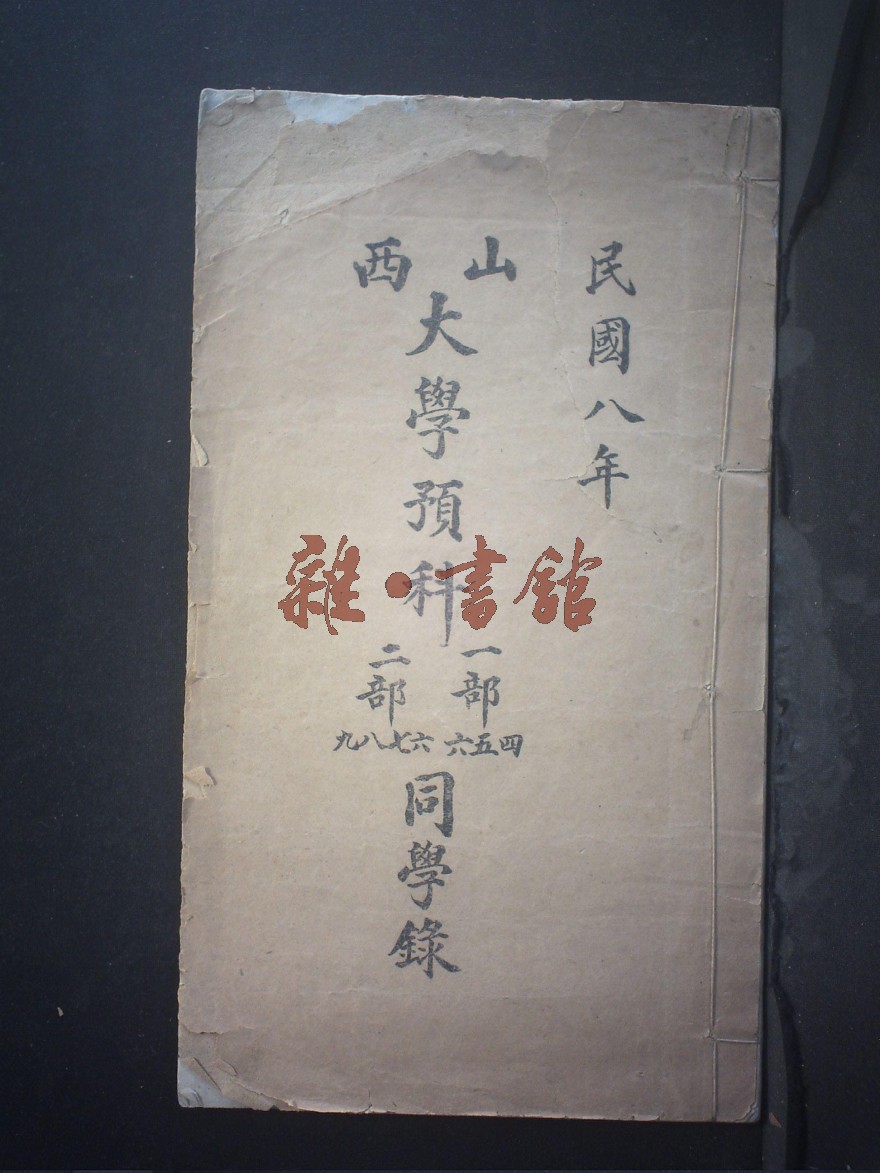 民國八年
山西
大學預科
一部
四五六
二部
六七八九
同學錄
雜·書館